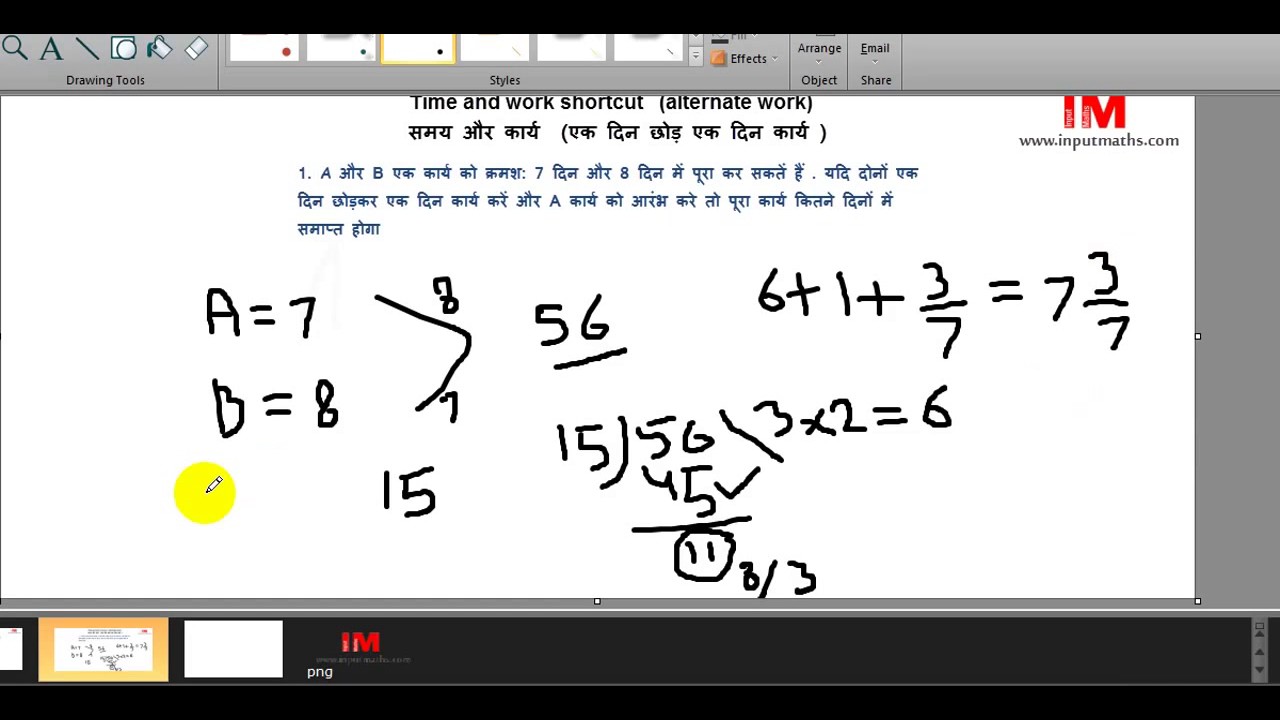 Fill
Effects
Arrange
Email
Drawing Tools
Styles
Object
Share
Time and work shortcut (alternate work)
समय और कार्य (एक दिन छोड़ एक दिन कार्य )
IM
Input Maths
www.inputmaths.com
1. A और B एक कार्य को क्रमश: 7 दिन और 8 दिन में पूरा कर सकतें हैं . यदि दोनों एक
दिन छोड़कर एक दिन कार्य करें और A कार्य को आरंभ करे तो पूरा कार्य कितने दिनों में
समाप्त होगा
A = 7
8
56
6+1+3/7 = 7 3/7
B = 8
7
15
15)56\3×2=6
45
11
8/3
IM
www.inputmaths.com
png